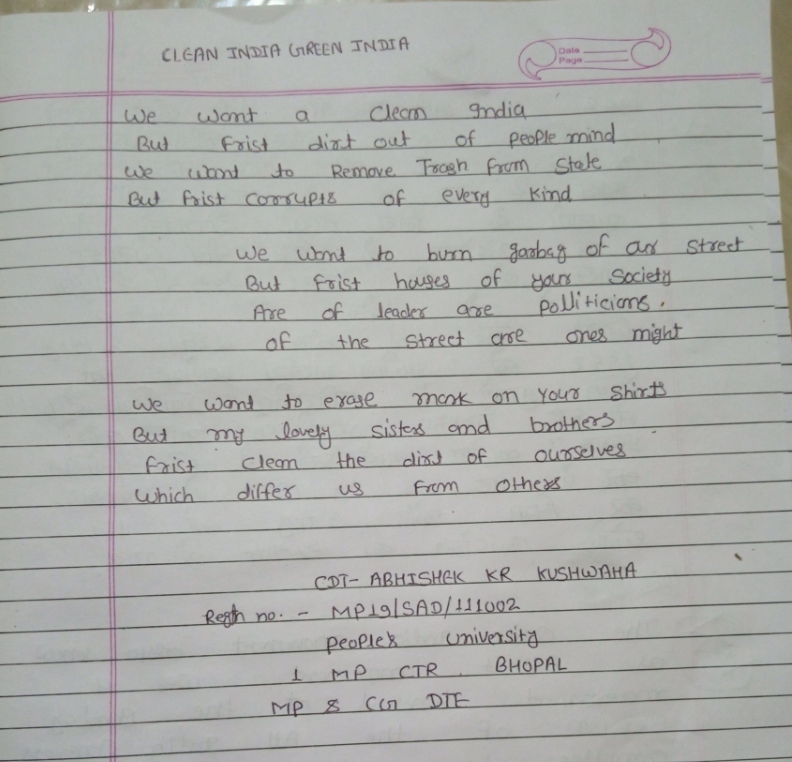 CLEAN INDIA GREEN INDIA
Date
Page
We want a clean India
But frist dirt out of people mind
We want to Remove Trash from State
But frist corrupts of every kind
We want to burn garbag of our street
But frist houses of your society
Are of leader are polliticians.
of the street are ones might
We want to erase mark on your shirts
But my lovely sisters and brothers
frist clean the dirt of ourselves
which differ us from others
CDT- ABHISHEK KR KUSHWAHA
Regth no. - MP19/SAD/111002
people's university
1 MP CTR BHOPAL
MP & CG DTE